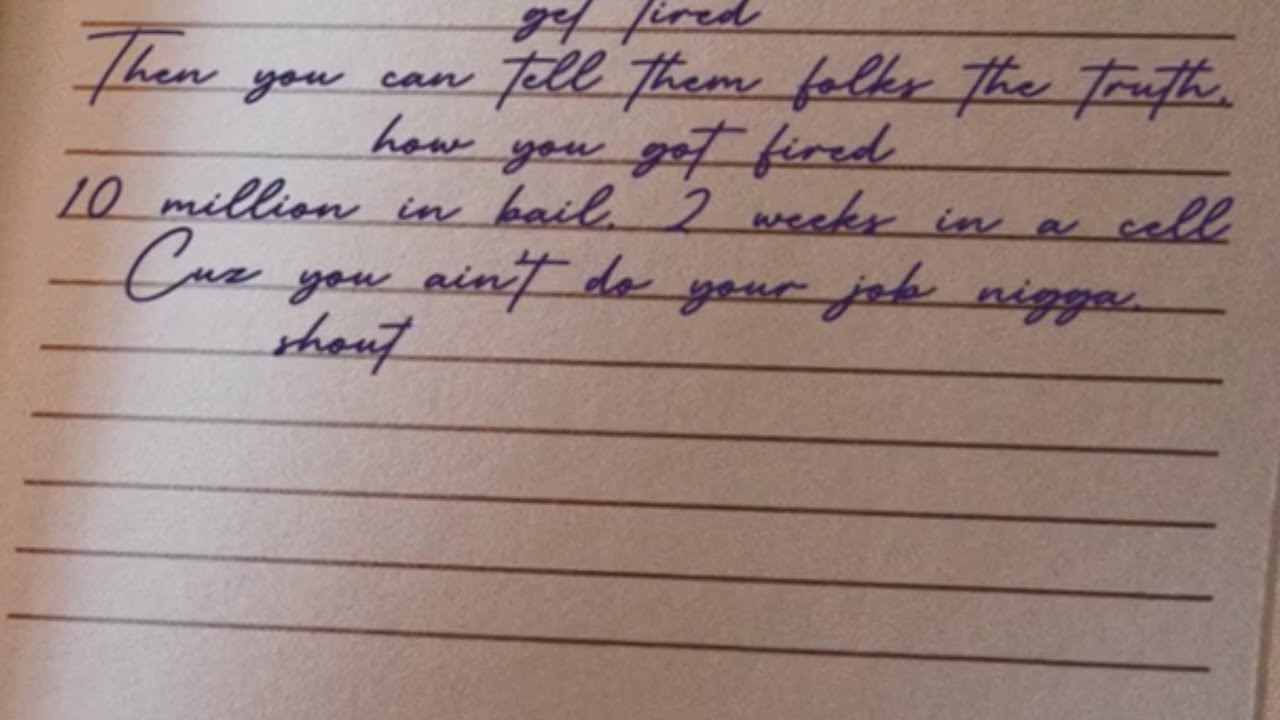 get tired
Then you can tell them folks the truth,
how you got fired
10 million in bail, 2 weeks in a cell
Cuz you ain't do your job nigga,
shout